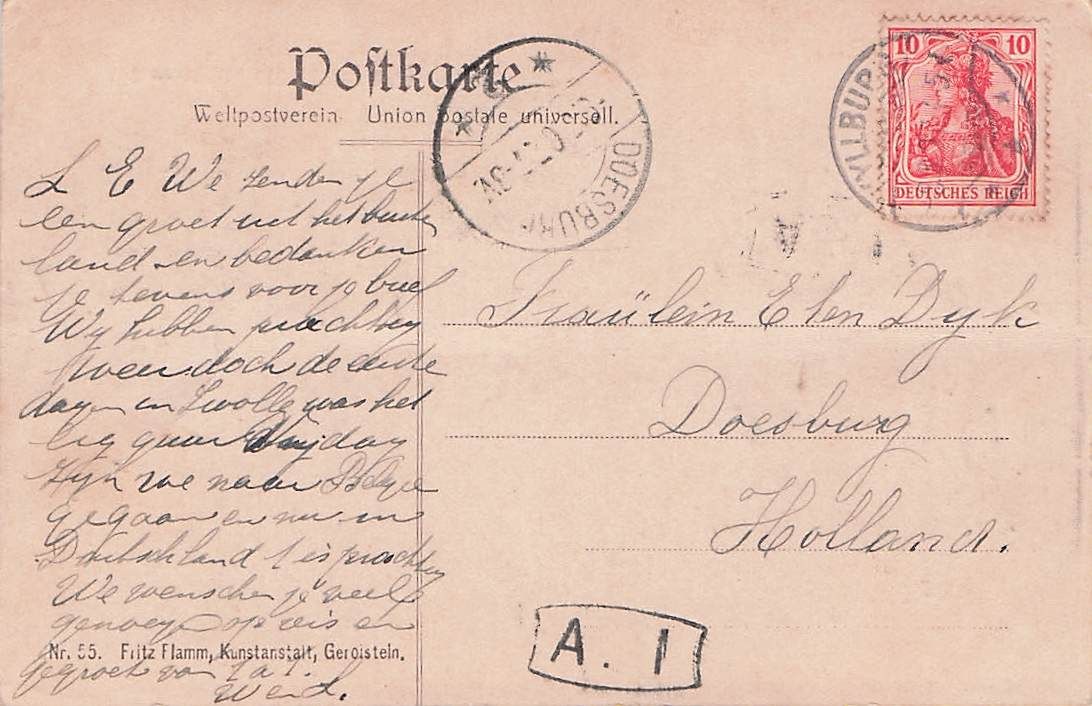 Postkarte
Weltpostverein Union postale universell.
10 10
DEUTSCHES REICH
KYLLBUR
DOESBURG
L E We zenden je
een groet uit het buiten
land en bedanken
je tevens voor je brief
Wij hebben prachtig
weer doch de eerste
dagen in Zwolle was het
guur dag
zijn we naar België
gegaan en nu in
Duitschland 't is prachtig
We wenschen je veel
genoegen op reis en
gegroet van
Fräulein E ten Dyk
Doesburg
Holland.
Nr. 55. Fritz Flamm, Kunstanstalt, Gerolstein.
A. I